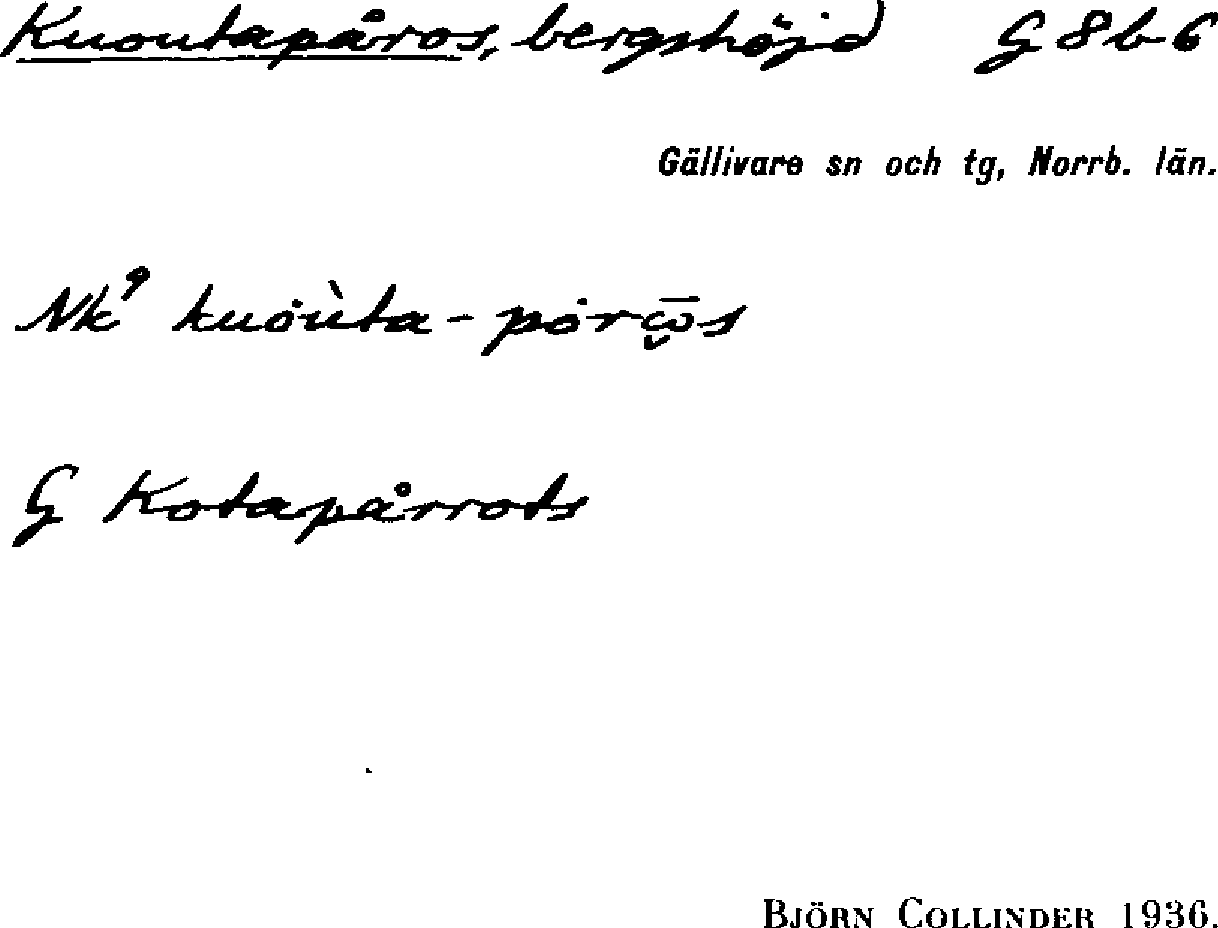 Kuoutapåros, bergshöjd G8b6
Gällivare sn och tg, Norrb. län.
Nk⁹ kuȯu̇̀ta-pȯrω̯̄s
G Kotapårrots
BJÖRN COLLINDER 1936.